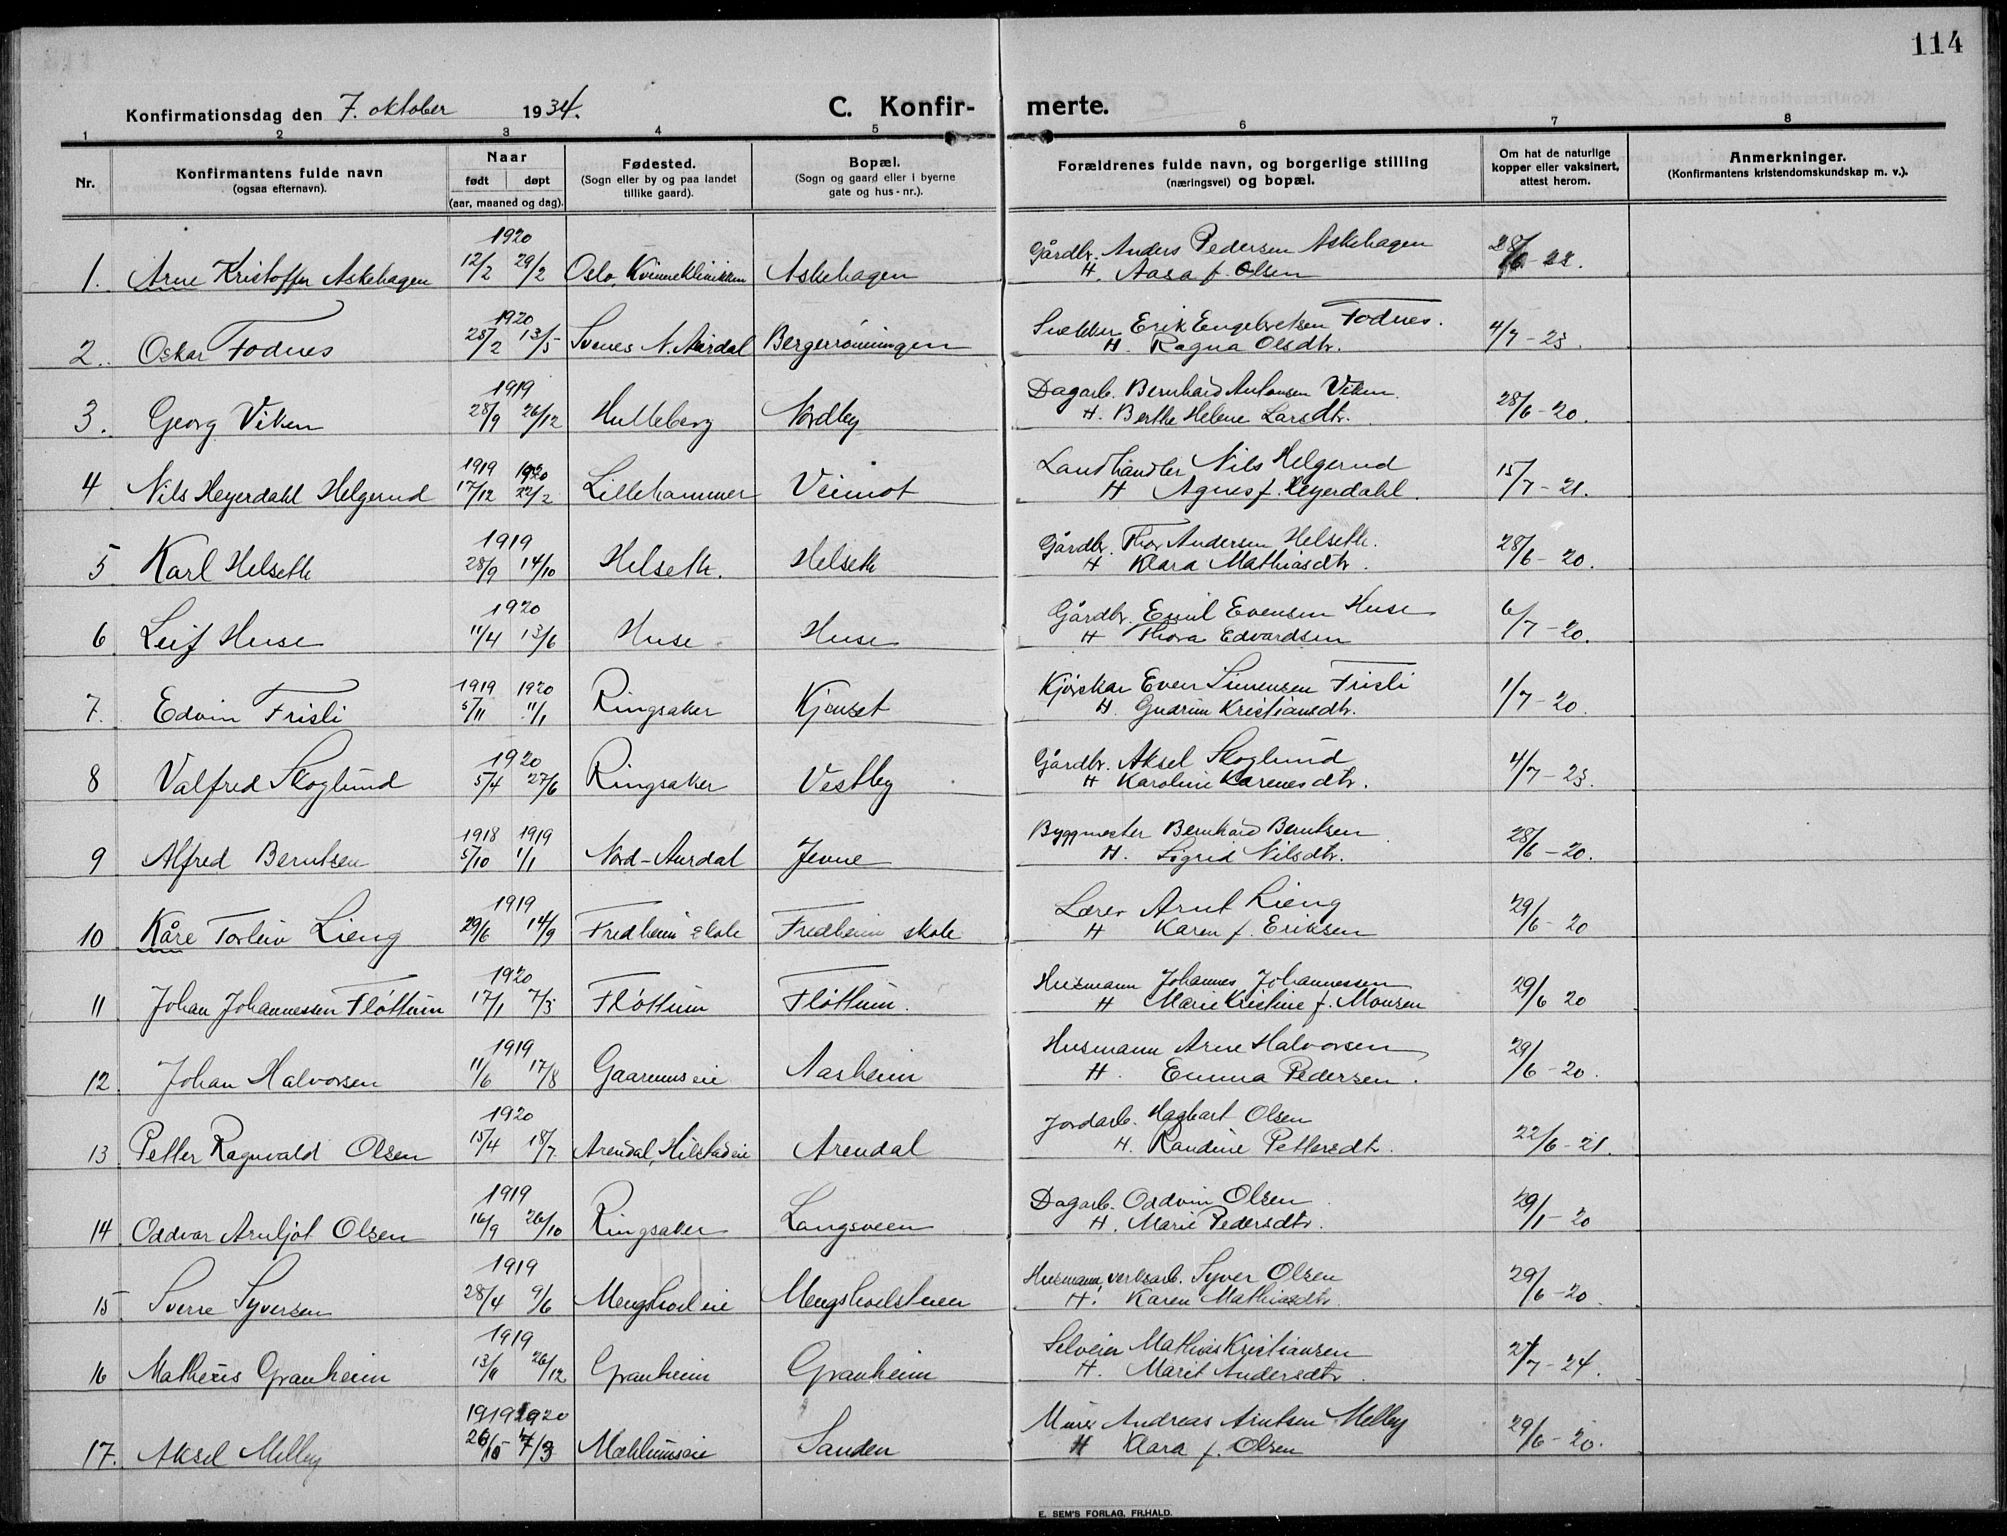 114
Konfirmationsdag den 7. oktober 1934. C. Konfir- merte.
1 2 3 4 5 6 7 8
Nr. Konfirmantens fulde navn (ogsaa efternavn). Naar født døpt (aar, maaned og dag). Fødested. (Sogn eller by og paa landet tillike gaard). Bopæl. (Sogn og gaard eller i byerne gate og hus-nr.). Forældrenes fulde navn, og borgerlige stilling (næringsvei) og bopæl. Om hat de naturlige kopper eller vaksinert, attest herom. Anmerkninger. (Konfirmantens kristendomskundskap m. v.).
1920 Gårdbr. Anders Pedersen Askehagen
1. Arne Kristoffer Askehagen 12/2 29/2 Oslo, Kvinneklinikken Askehagen H. Aasa f. Olsen
1920 Snekker Erik Engebretsen Fodnes.
2. Oskar Fodnes 28/2 13/5 Svenes N. Aurdal Bergerrønningen H. Ragna Olsdtr. 4/7-23.
1919 Dagarb. Bernhard Antonsen Viken
3. Georg Viken 28/9 26/12 Hulleberg Nordby H. Berthe Helene Larsdtr. 28/6-20.
1919 1920 Landhandler Nils Helgerud
4 Nils Heyerdahl Helgerud 17/12 22/2 Lillehammer Veimot H Agnes f. Heyerdahl. 15/7-21.
1919 Gårdbr. Thor Andersen Helseth.
5 Karl Helseth 28/9 14/10 Helseth. Helseth H Klara Mathiasdtr. 28/6-20.
1920 Gårdbr. Emil Evensen Huse
6 Leif Huse 11/4 13/6 Huse Huse H Thora Edvardsen 6/7-20.
1919 1920 Kjørekar Even Simensen Frisli
7. Edvin Frisli 5/11 11/1 Ringsaker Kjonset H. Gudrun Kristiansdtr. 1/7-20.
1920 Gårdbr. Aksel Skoglund
8 Valfred Skoglund 5/4 27/6 Ringsaker Vestby H Karoline Karenesdtr. 4/7-23.
1918 1919 Byggmester Bernhard Berntsen
9 Alfred Berntsen 5/10 1/1 Nord-Aurdal Jevne H. Sigrid Nilsdtr. 28/6-20.
1919 Lærer Arnt Lieng
10 Kåre Torleiv Lieng 29/6 14/9 Fredheim skole Fredheim skole H Karen f. Eriksen 29/6-20
1920 Husmann Johannes Johannessen
11 Johan Johannessen Fløttum 17/1 7/3 Fløttum Fløttum. H Marie Kristine f. Monsen 29/6 20
1919 Husmann Arne Halvorsen
12. Johan Halvorsen 11/6 17/8 Gaarumseie Aasheim H. Emma Pedersen. 29/6-20.
1920 Jordarb. Hagbart Olsen
13 Petter Ragnvald Olsen 15/4 18/7 Arendal, Hilstadeie Arendal H. Randine Pettersdtr. 22/6-21.
1919 Dagarb. Oddvin Olsen
14 Oddvar Arnljot Olsen 16/9 26/10 Ringsaker Langsveen H. Marie Pedersdtr. 29/1-20
1919 Husmann, verksarb. Syver Olsen
15 Sverre Syversen 28/4 9/6 Mengshoel eie Mengshoelstuen H. Karen Mathiasdtr 29/6-20.
1919 Selveier Mathias Kristiansen
16 Matheus Granheim 13/11 26/12 Granheim Granheim H. Marit Andersdtr. 27/7-24.
1919 1920 Murer Andreas Arntsen Melby
17. Aksel Melby 26/10 7/3 Mæhlumseie Sanden H Klara f. Olsen 29/6-20.
E. SEM'S FORLAG, FR.HALD.